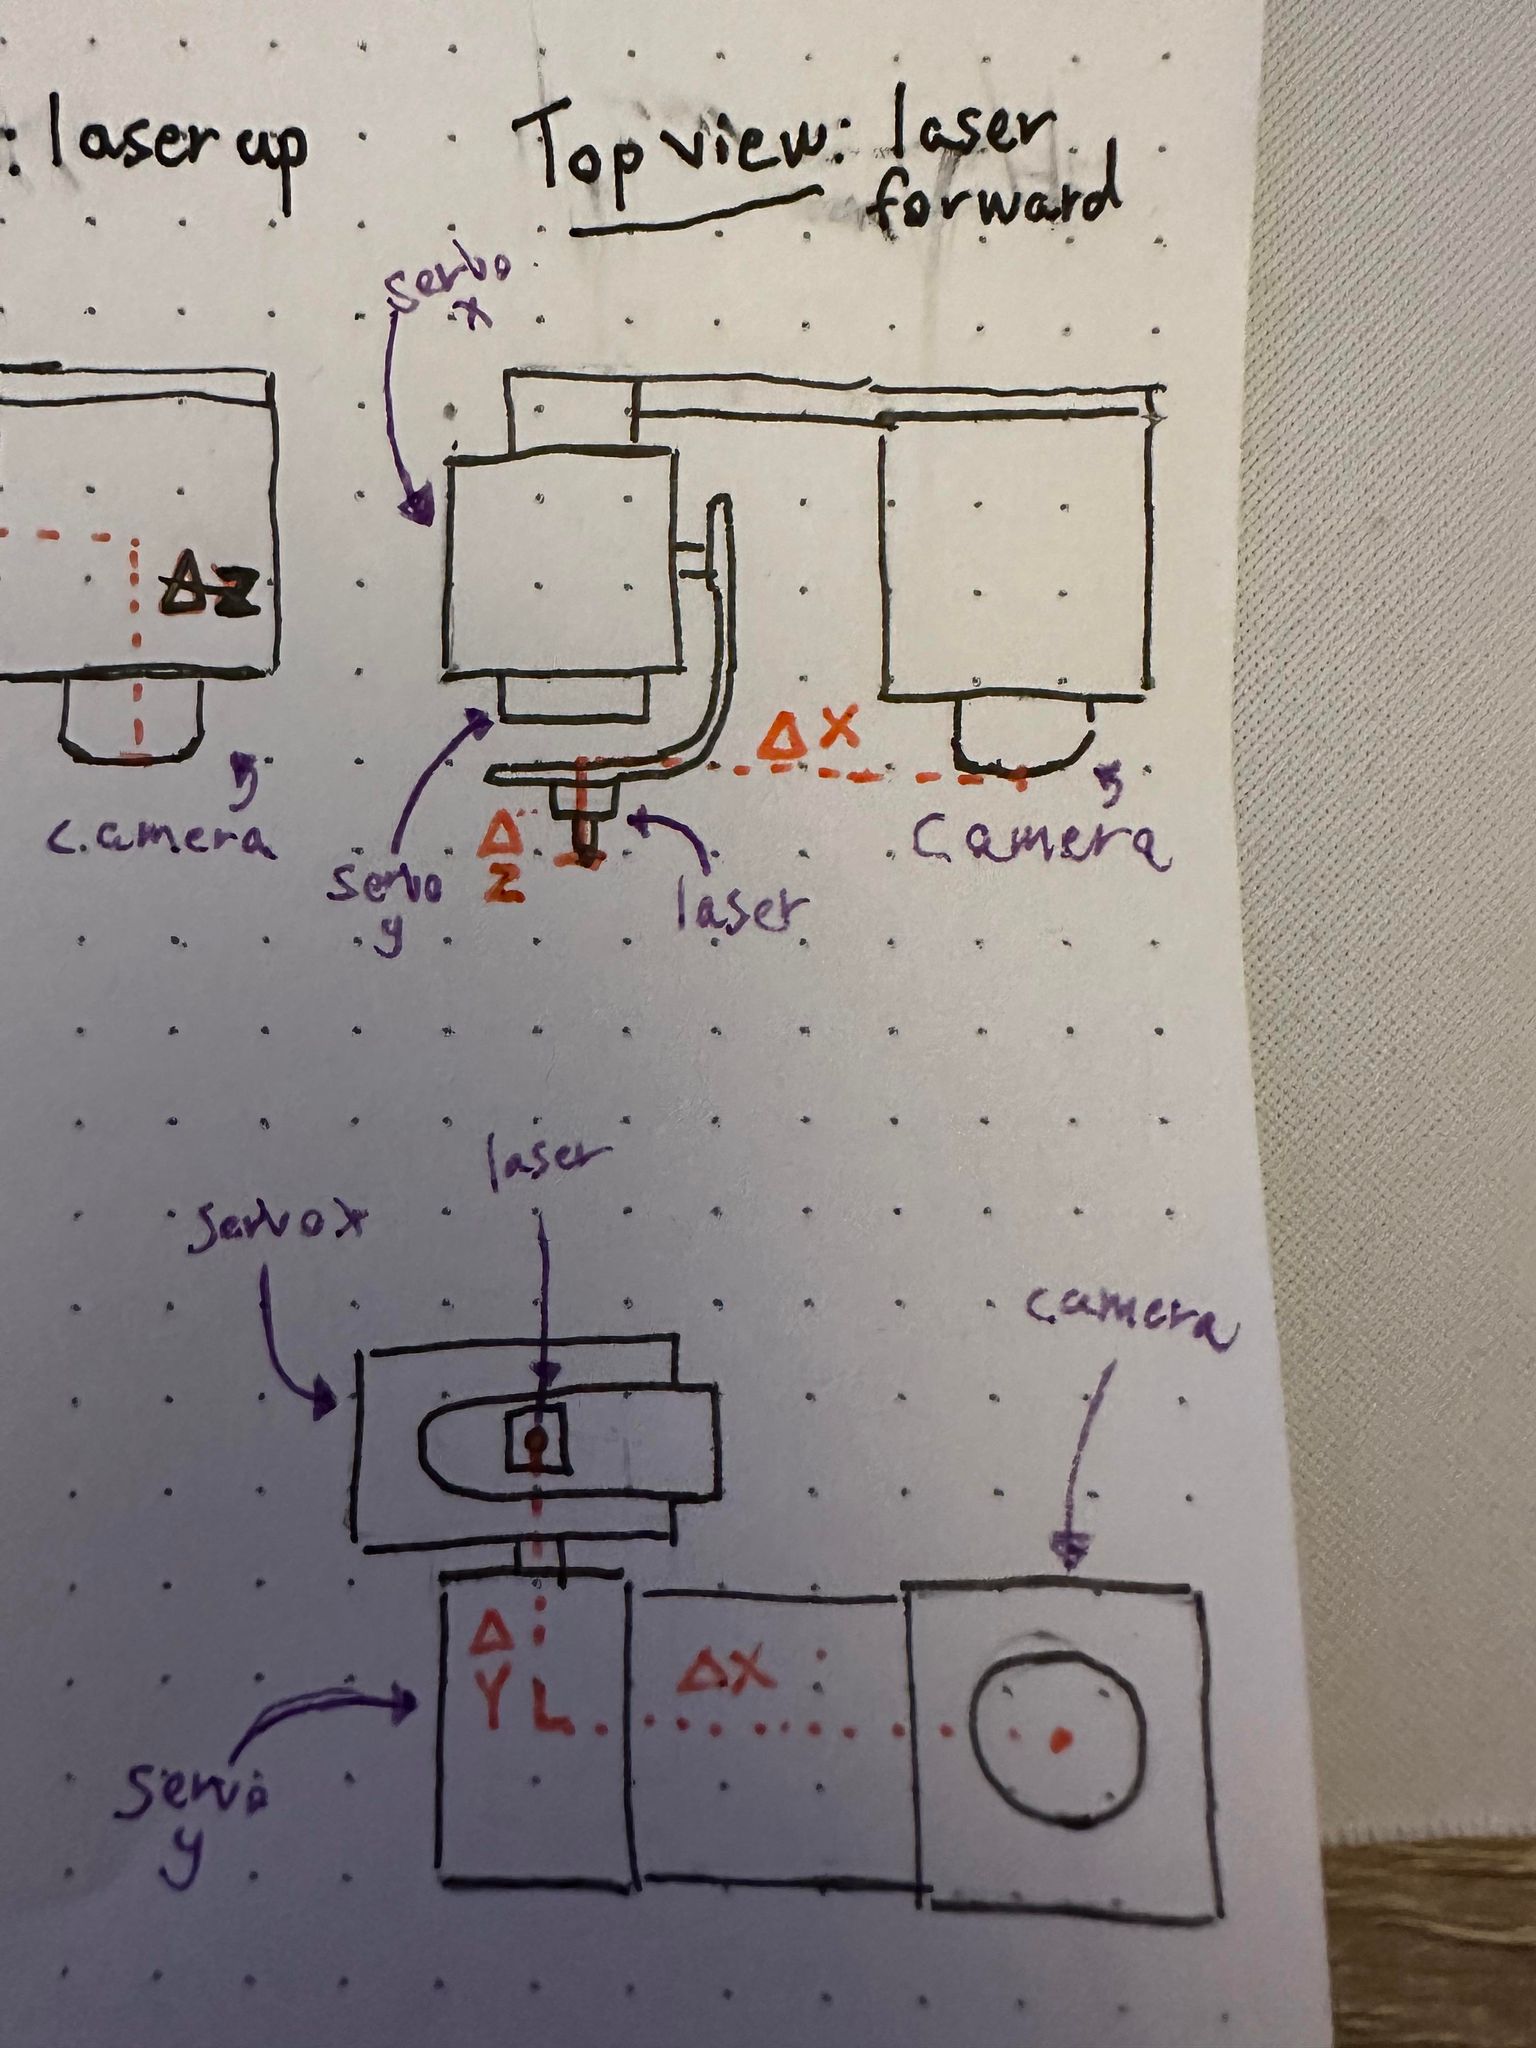 : laser up
Top view: laser
forward
servo
x
ΔZ
ΔX
camera
camera
Δ
Z
servo
y
laser
laser
servo x
camera
Δ
Y
ΔX
servo
y